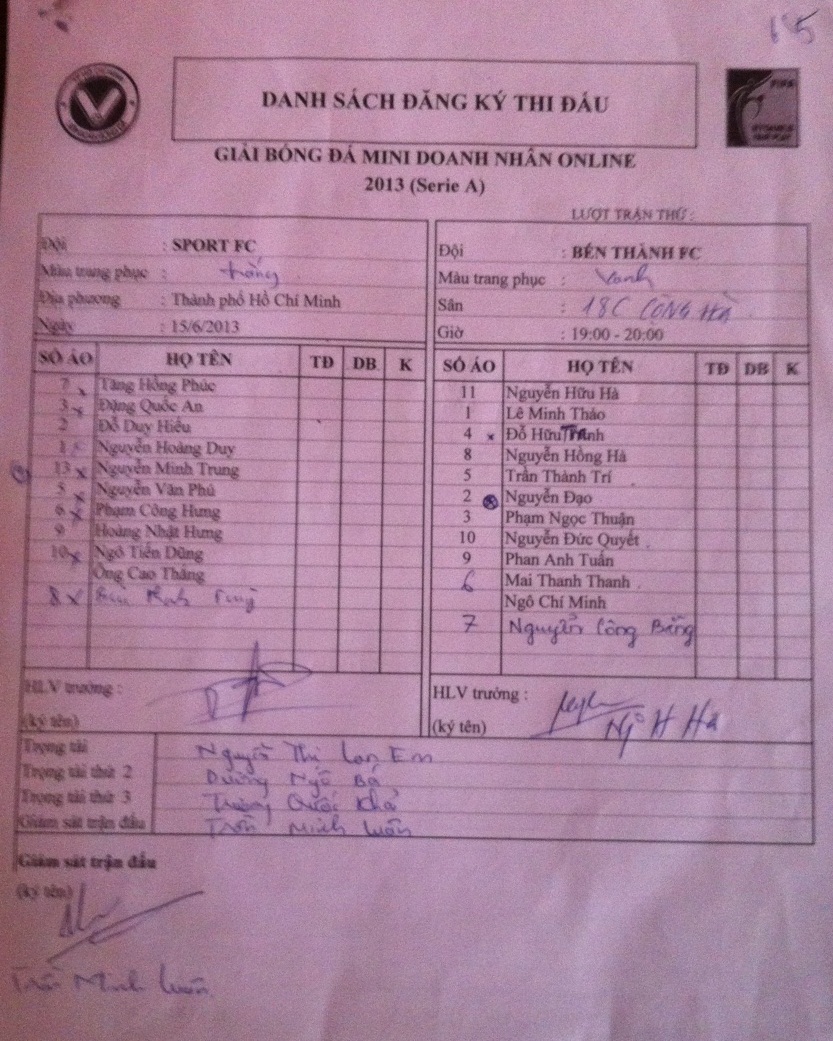 DANH SÁCH ĐĂNG KÝ THI ĐẤU
GIẢI BÓNG ĐÁ MINI DOANH NHÂN ONLINE
2013 (Serie A)
LƯỢT TRẬN THỨ :
Đội : SPORT FC
Màu trang phục : trắng
Địa phương : Thành phố Hồ Chí Minh
Ngày : 15/6/2013
SỐ ÁO HỌ TÊN TĐ DB K
7 Tăng Hồng Phúc
3 Đặng Quốc An
2 Đỗ Duy Hiếu
1 Nguyễn Hoàng Duy
13 x Nguyễn Minh Trung
5 x Nguyễn Văn Phú
6 x Phạm Công Hưng
9 Hoàng Nhật Hưng
10 x Ngô Tiến Dũng
Ông Cao Thắng
8 x
HLV trưởng :
(ký tên)
Đội : BẾN THÀNH FC
Màu trang phục : Xanh
Sân : 18C CỘNG HÀ
Giờ : 19:00 - 20:00
SỐ ÁO HỌ TÊN TĐ DB K
11 Nguyễn Hữu Hà
1 Lê Minh Thảo
4 x Đỗ Hữu
8 Nguyễn Hồng Hà
5 Trần Thành Trí
2 Nguyễn Đạo
3 Phạm Ngọc Thuận
10 Nguyễn Đức Quyết
9 Phan Anh Tuấn
6 Mai Thanh Thanh
Ngô Chí Minh
7 Nguyễn Công Bằng
HLV trưởng :
(ký tên) Ng H Hà
Trọng tài Nguyễn Thị Lan Em
Trọng tài thứ 2 Dương Ngô Bá
Trọng tài thứ 3 Trương Quốc Khả
Giám sát trận đấu Trần Minh Luân
Giám sát trận đấu
(ký tên)
Trần Minh Luân